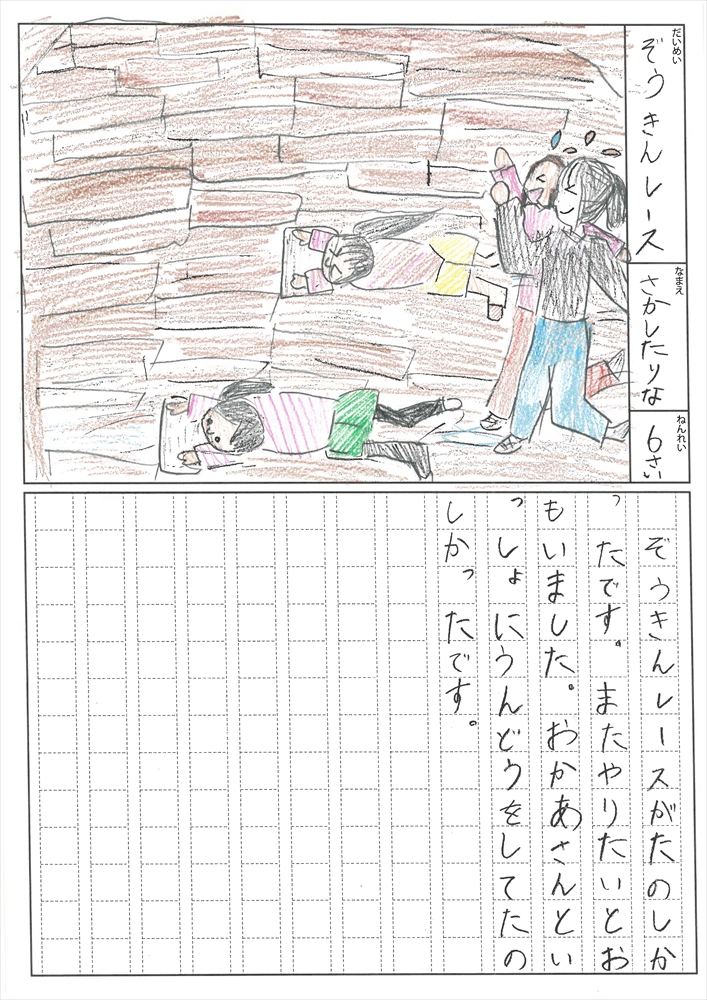 だいめい
ぞうきんレース
なまえ
さかしたりな
ねんれい
6さい
ぞうきんレースがたのしか
ったです。またやりたいとお
もいました。おかあさんとい
っしょにうんどうをしてたの
しかったです。